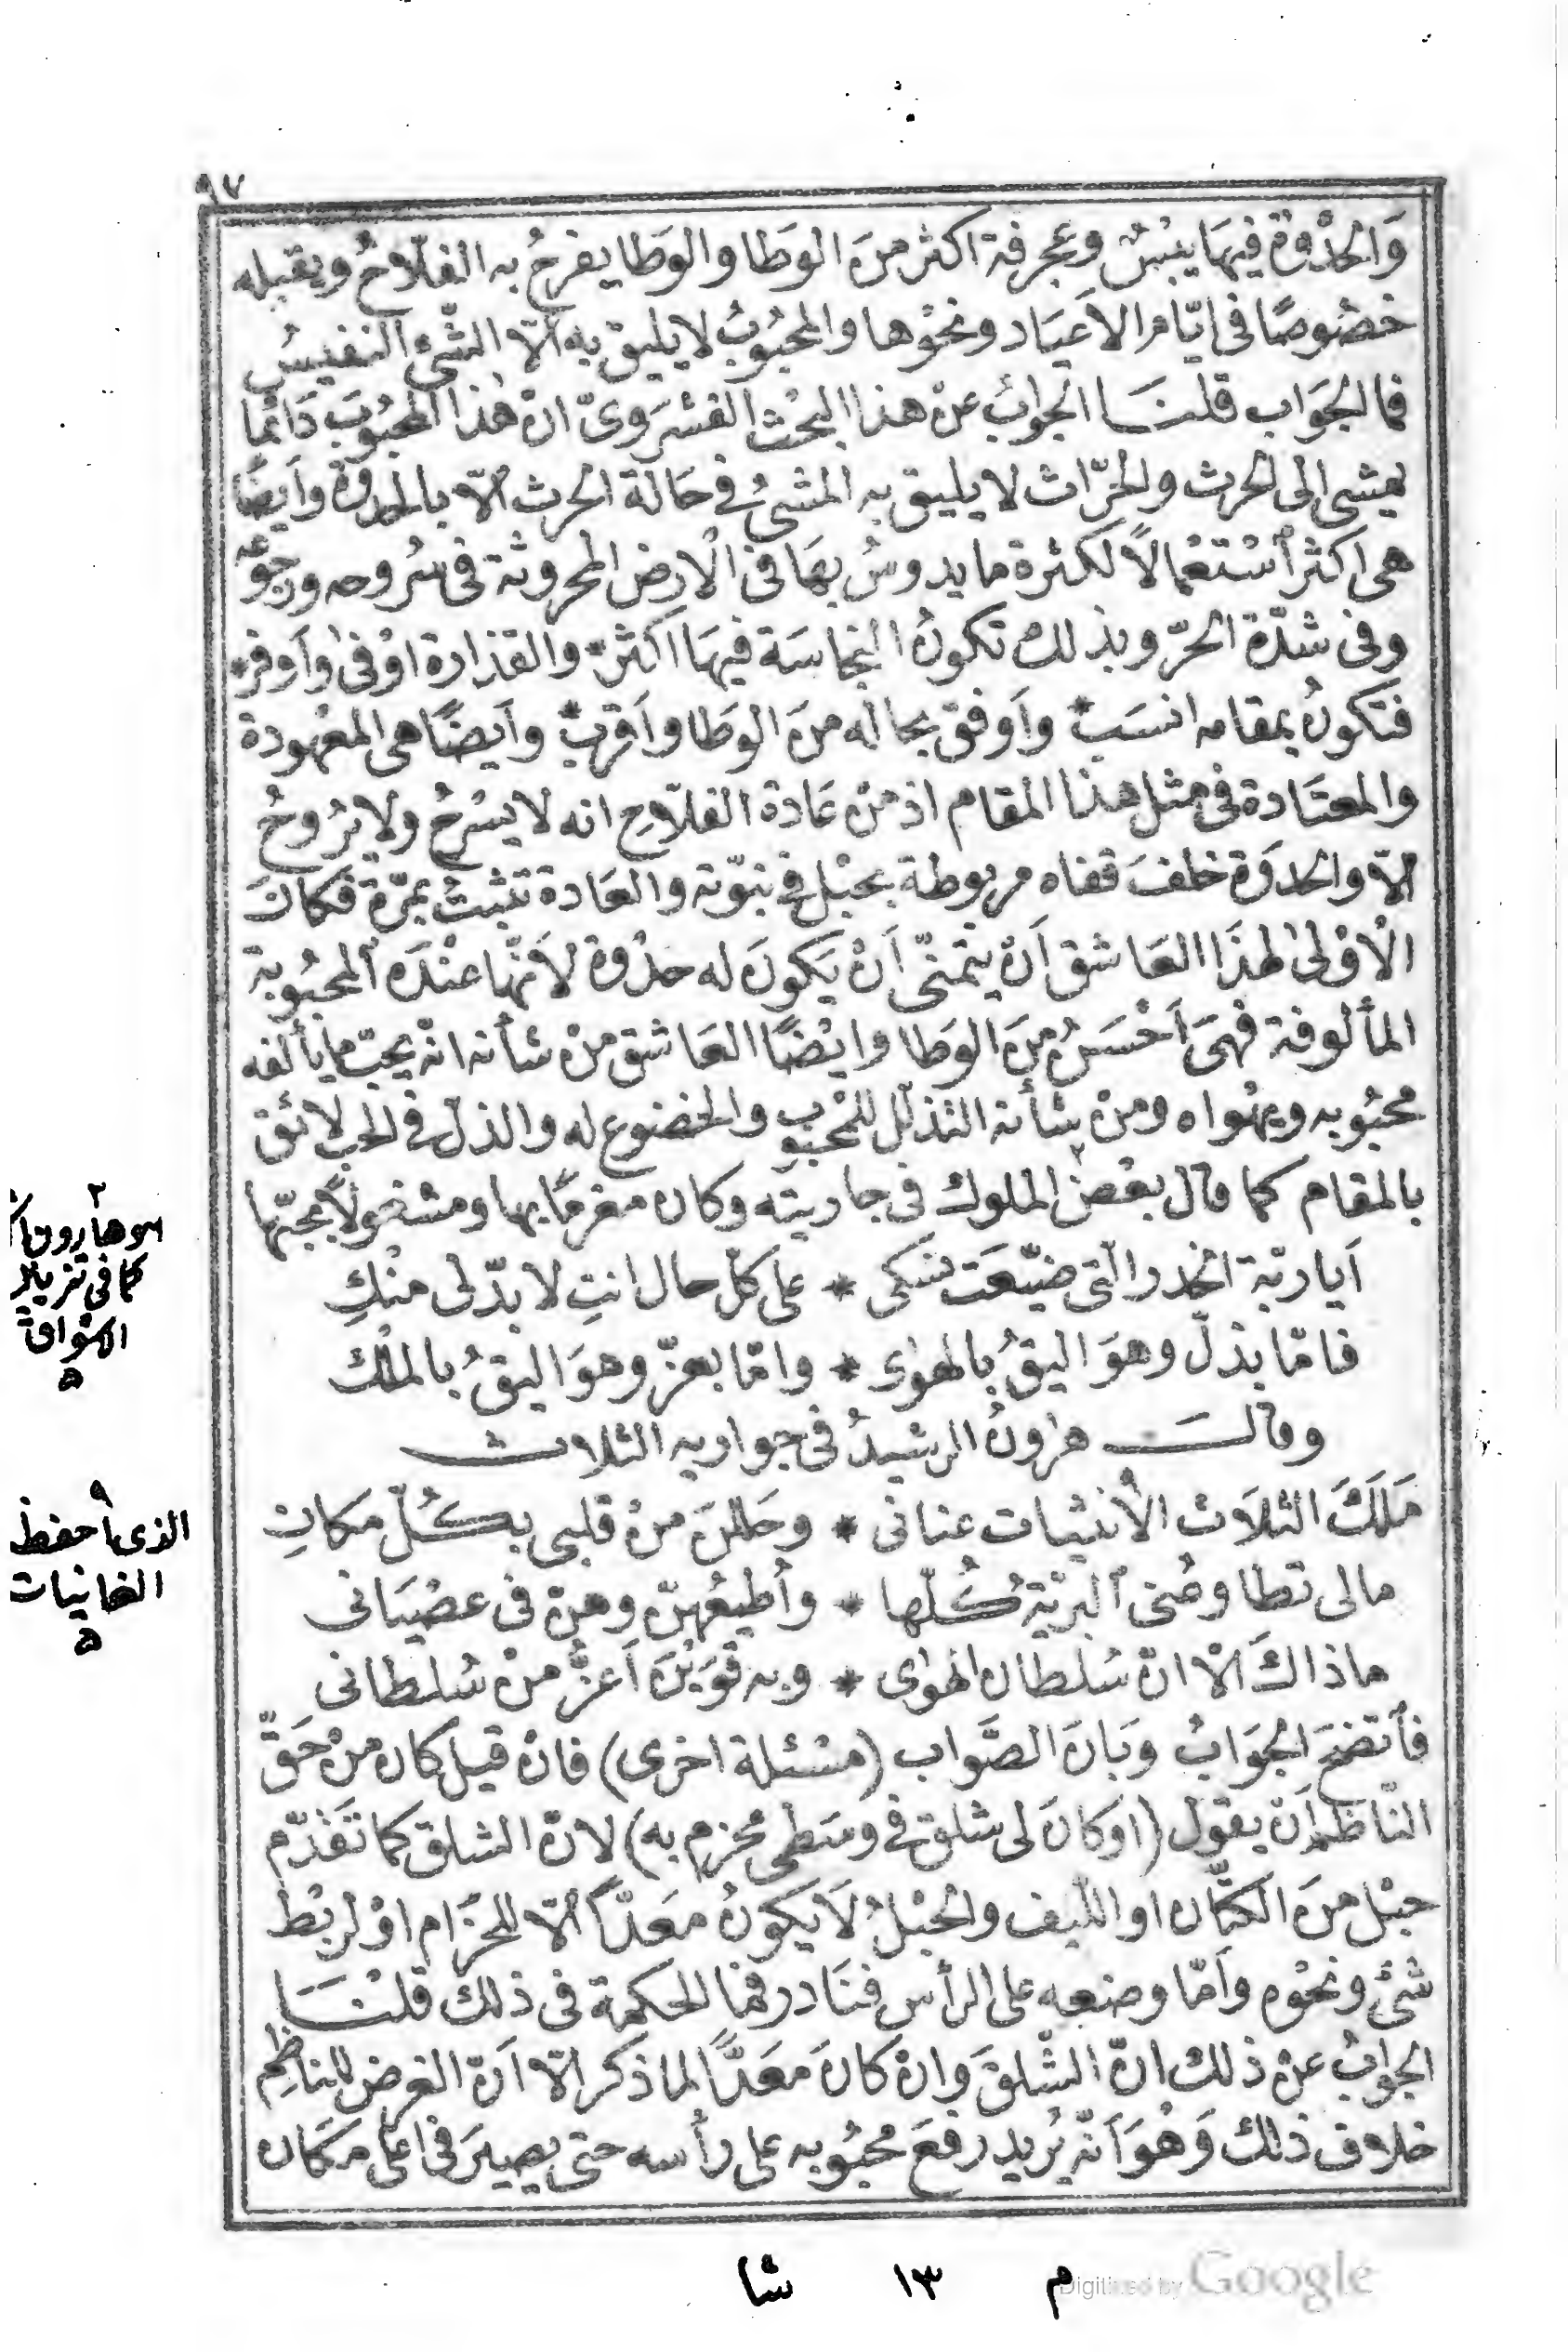 ٩٧
وَالحُدْوَة فيهَا يُبْسٌ وعجرفة اكثر مِنَ الوَطَا والوَطَا يفرحُ به الفلّاحُ ويقبله
خصُوصًا فى ايّام الاَعيَاد ونحوْها والمحبُوبُ لا يليق به الّا الشّئ النفيسُ
فما الجوَاب قلنَا الجوابُ عنْ هذا البحْث الفشرَوىّ انّ هٰذا المحبُوبَ دَائمًا
يمشى الى الحرث والحرّاث لا يليق به المشىُ فى حَالة الحرث الّا بالحدوة وايضًا
هى اكثر اُسْتعْمالاً لكثرة ما يدوسُ بهَا فى الارض المحروثة فى سرُوحه ورجوعه
وفى شدّة الحرّ وبذلك تكونُ النجاسَة فيهَا اكثر* والقذارة اوْفى وٲوفر*
فتكونُ بمقامه انسَب* وأوفق بحاله منَ الوَطا واَقرب* وأيضًا هى المعْهودة
والمعتَادة فى مثل هذا المقام اذ منْ عَادة الفلّاح انه لا يسْرحُ ولا يرُوحُ
الّا والحدوَة خلفَ قفاه مربوطة بحبْل فى نبّوته والعَادة تثبتُ بمرّة فكانَ
الْاوْلىٰ لهذَا العَاشق اَنْ يتمنّى اَنْ يَكونَ له حدْوة لأنّها عنْدَه المحبُوبة
المألوفة فهىَ اَحْسَنُ مِنَ الوَطا وايضًا العَاشق منْ شأنه انّه يحبّ ما يألفه
محبُوبه ويهْواه ومنْ شأنه التذلّل للمحْبوب والخضوع له والذلّ فى الحب لائق
بالمقام كما قال بعْضُ٢ الملوك فى جاريته وكان مغرمًا بها ومشغولاً بمحبّتها
اَيا ربّة الخدر التى ضيّعَت نسكى * على كلّ حال انتِ لا بدّ لى منْكِ
فامّا بذلّ وهوَ اليقُ بالهوى * وامّا بعزّ وهوَ اليقُ بالملْك
وقالَ هٰرونُ الرشيدُ فى جواريه الثلاث
مَلَكَ الثلَاث الاُنثيات عنانى * وحَللنَ منْ قلبى بكُلّ مكانِ
مالى تطاوعُنى البريّة كُلّها * وأُطيعُهنّ وهنّ فى عصْيَانى
ما ذاكَ الّا انّ سُلطان الهوٰى * وبه قوَيْنَ اَعزُّ منْ سُلطانى
فٱتضحَ الجوَابُ وَبانَ الصَّواب (مسْئلة اخرى) فانْ قيل كان منْ حَقّ
النّاظم اَنْ يقول (اوْ كانَ لى شلق فى وسَطى محزم به) لانّ الشلق كما تَقدّم
حبْل منَ الكتَّان او اللّيف والحبْلُ لَا يكونُ معَدّاً الّا للحزَام اوْ لربْط
شئ ونحْوه وأمّا وضعه على الرأس فنَادر فما الحكمة فى ذلك قلنَا
الجوابُ عنْ ذلك انّ الشّلقَ وانْ كانَ معَدًّا لما ذكر الّا اَنّ الغرض للناظم
خلاف ذلك وَهُوَ اَنّه يُريد رفعَ محبُوبه على رأسه حتى يصيرَ فى اعلى مكَان
٢
هو هارون
كما فى تزيين
الاسواق
ه
٩
الذى أحفظ
الغانيات
ه
م ١٣ شا
Digitized by Google